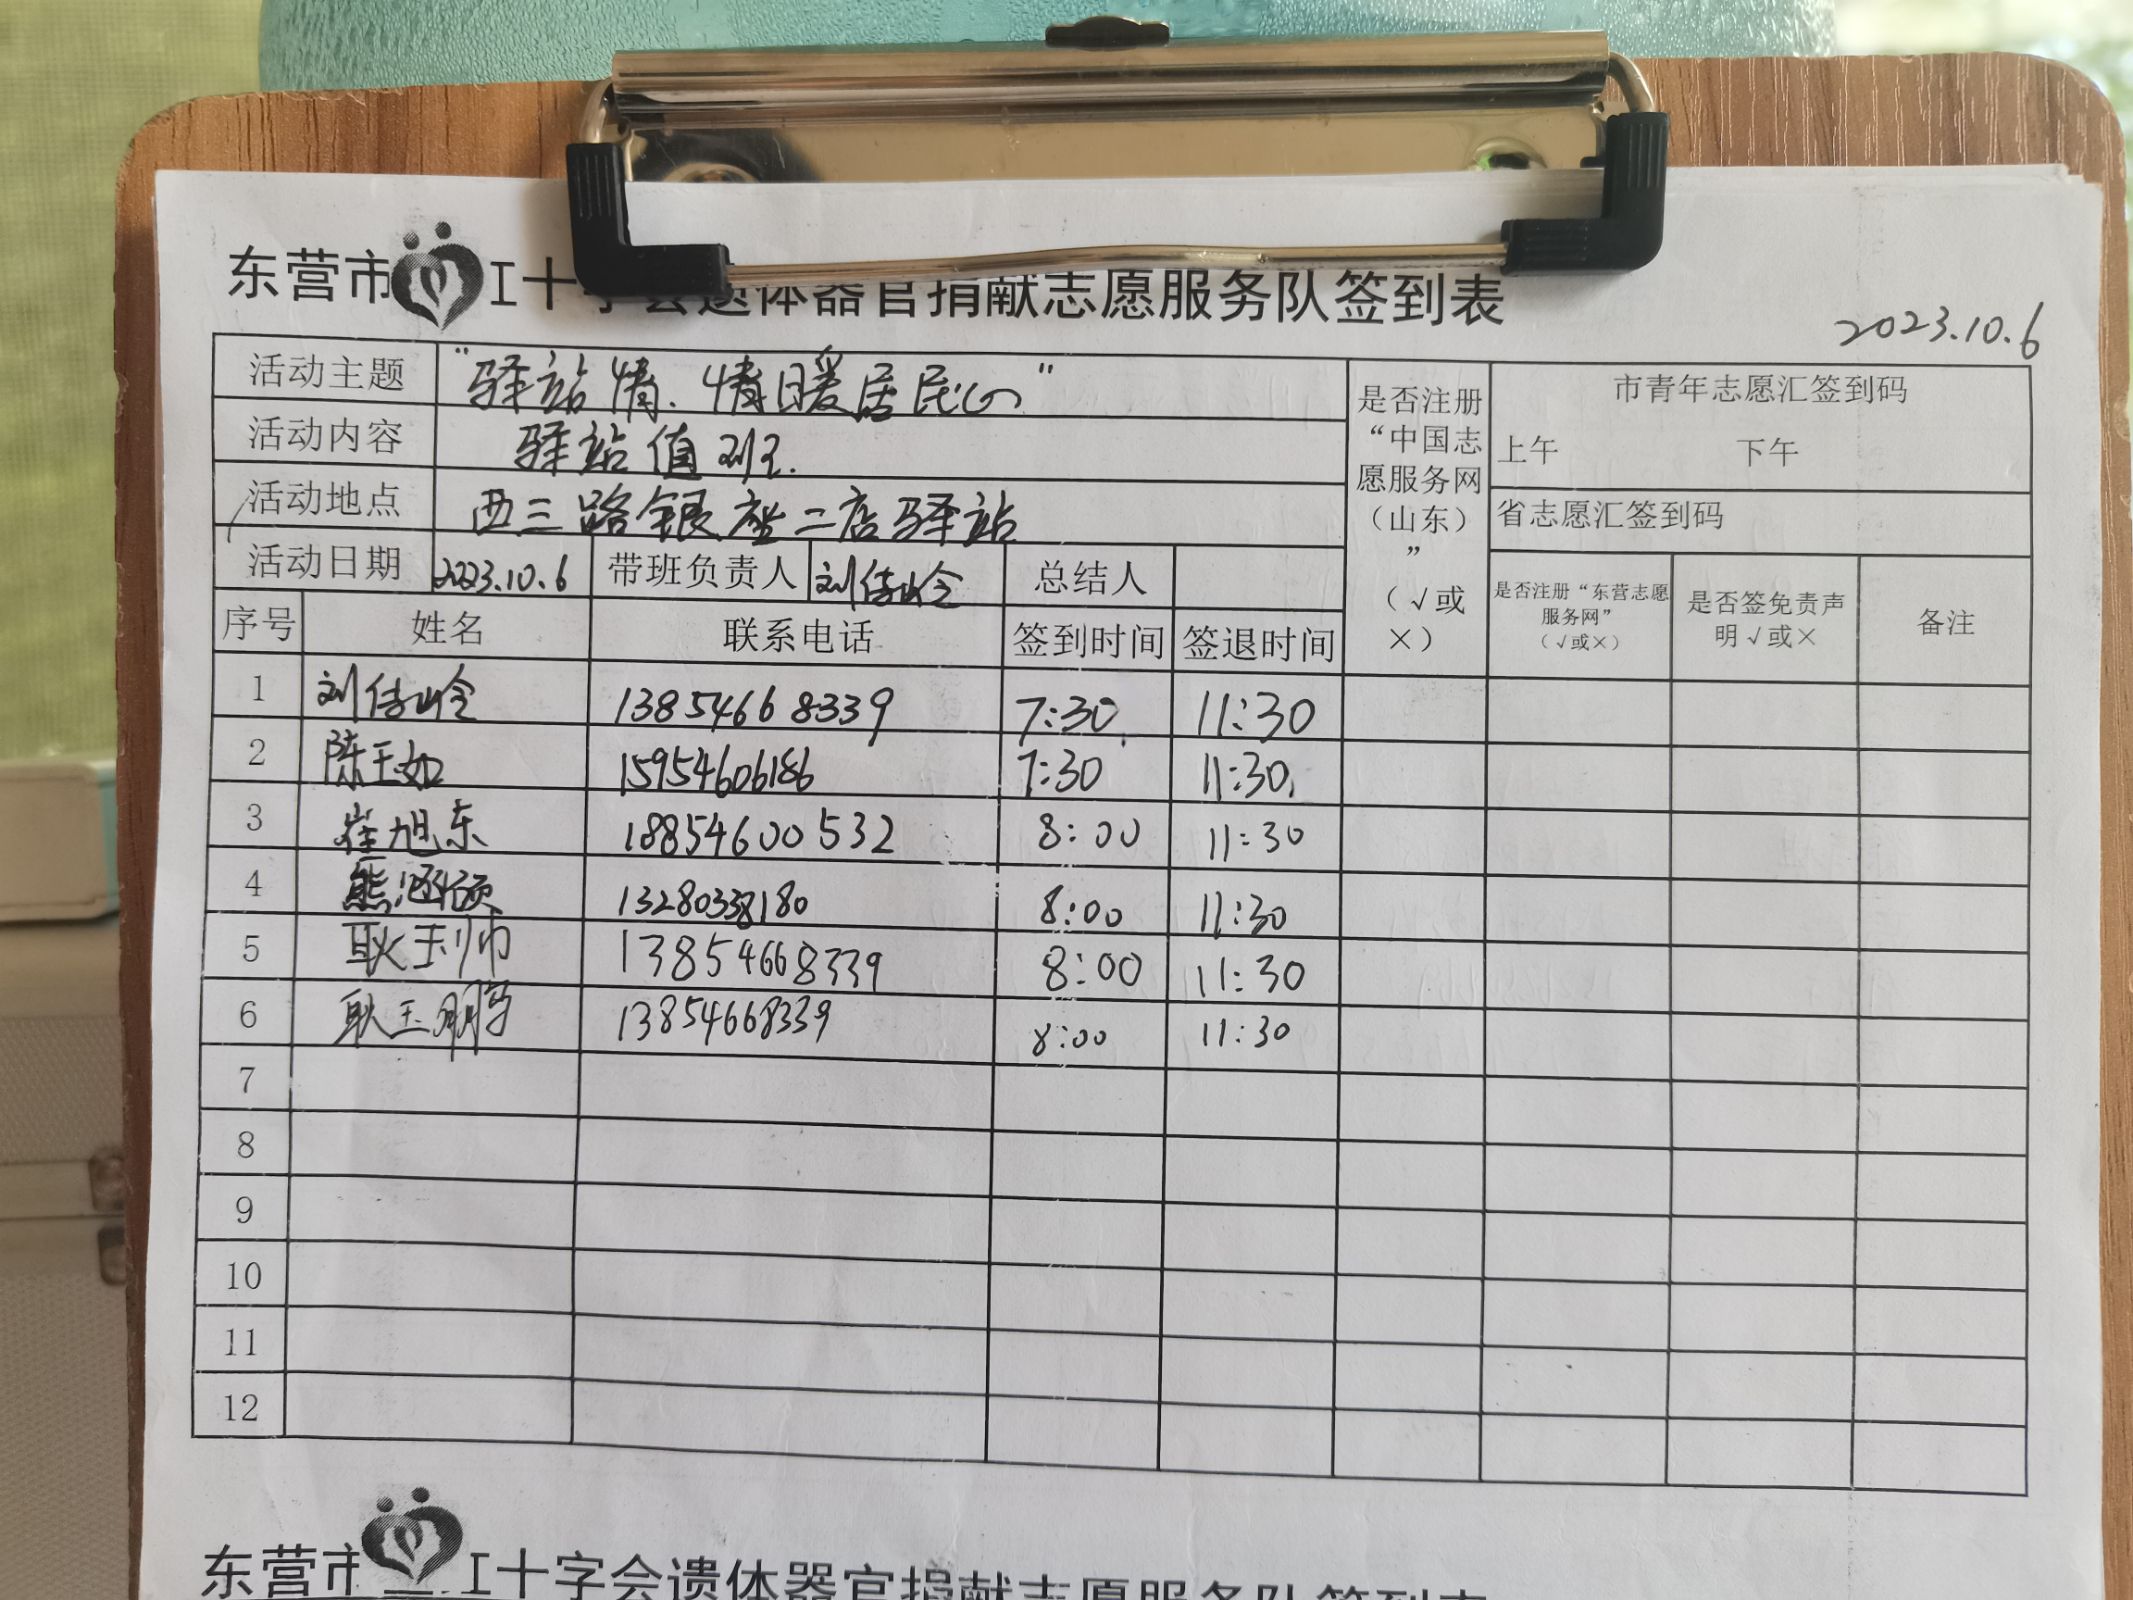 东营市 工十字会遗体器官捐献志愿服务队签到表
2023.10.6
活动主题 "驿站情、情暖居民心"
活动内容 驿站值班.
活动地点 西三路银座二店驿站
活动日期 2023.10.6 带班负责人 刘 总结人
是否注册“中国志愿服务网（山东）”（√或×）
市青年志愿汇签到码
上午 下午
省志愿汇签到码
是否注册“东营志愿服务网”（√或×） 是否签免责声明√或× 备注
序号 姓名 联系电话 签到时间 签退时间
1 刘 13854668339 7:30 11:30
2 陈玉如 15954606186 7:30 11:30
3 崔旭东 18854600532 8:00 11:30
4 熊涵颐 13280338180 8:00 11:30
5 耿玉帅 13854668339 8:00 11:30
6 耿玉鹏 13854668339 8:00 11:30
7
8
9
10
11
12
东营市 工十字会遗体器官捐献志愿服务队签到表